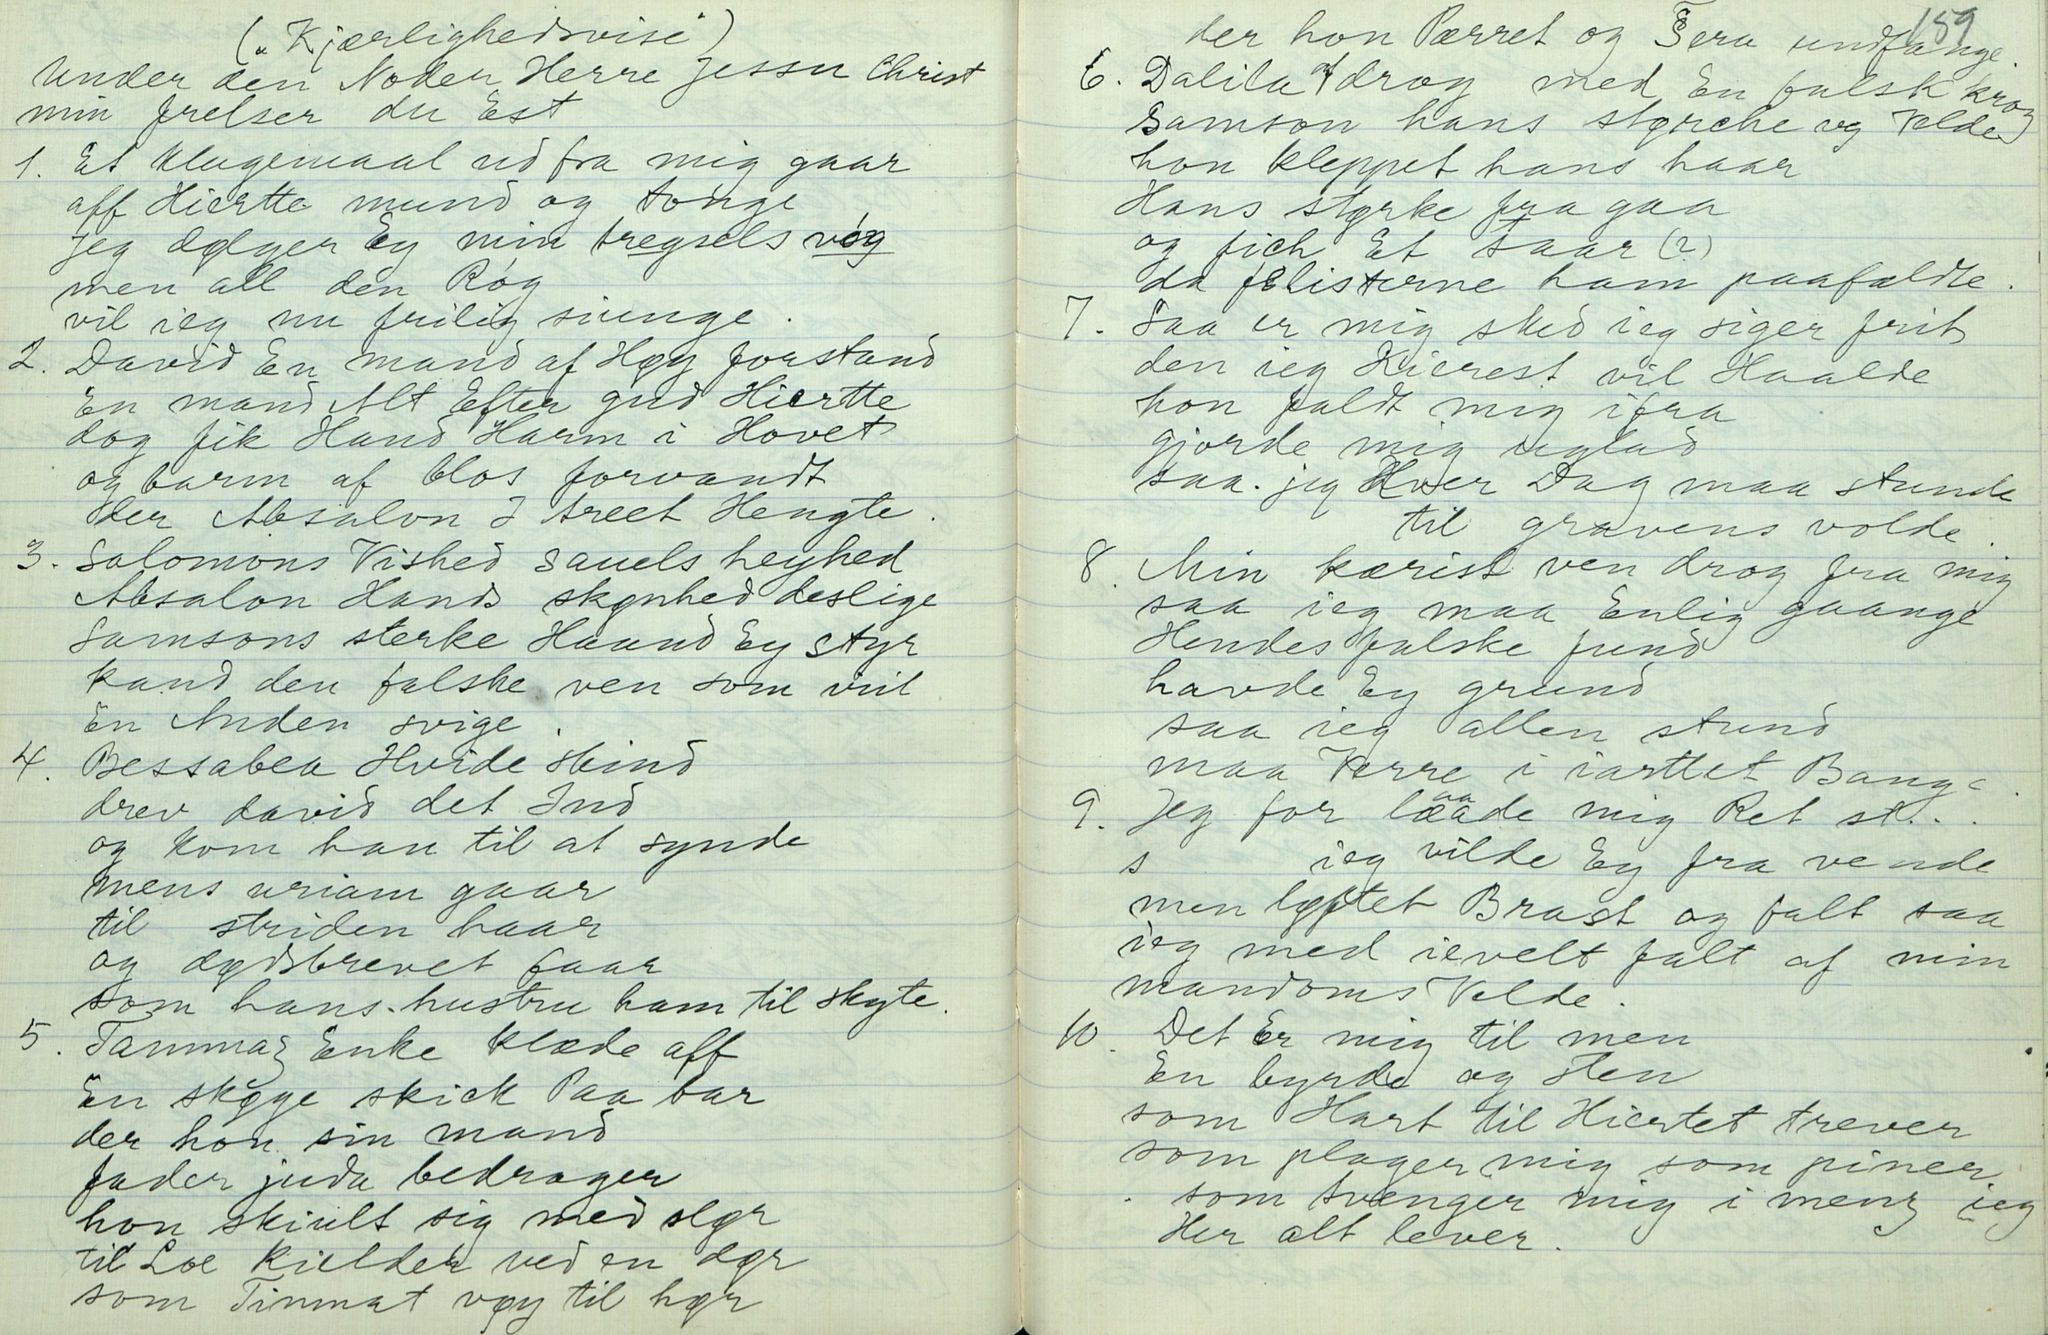 ("Kjærlighedsvise")
Under den Noder Herre Jessu Christ
min frelser du Est
1. Et klagemaal ud fra mig gaar
aff Hiertte mund og tonge
jeg dølger Ey min tregsels vóg
men all den Róg
vil ieg nu frilig siunge.
2. David En mand af Høy forstand
En mand Alt Efter gud Hiertte
dog fik Hand Harm i Hovet
og barm af blos forvandt
der Absalon I treet Hengte.
3. Salomons Vished Sauels heyhed
Absalon Hands skønhed deslige
Samsons sterke Haand Ey styr
kand den falske ven som viil
En Anden svige.
4. Bessabea Hvide skind
drev david det Ind
og kom han til at synde
mens uriam gaar
til striden haar
og dødsbrevet faar
som hans hustru ham til skyte.
5. Tammaz Enke klæde aff
En skøge skick Paa bar
der hon sin mand
fader juda bedrager
hon skiult sig med slør
til Loe kielder ved en dør
som Tinmat vøy til hør
159
der hon Pærret og Sera undfange.
6. Dalila af drog med En falsk krog
Samson hans størche og Velde
hon kleppet hans haar
Hans størke fra gaa
og fich Et saar (?)
da felisterne ham paafaldte.
7. Saa er mig sked ieg siger frit
den ieg Kierest vil Haalde
hon faldt mig ifra
gjorde mig uglad
saa jeg Hver Dag maa stunde
til gravens volde.
8. Min kærist ven drog fra mig
saa ieg maa Enlig gaange
Hendes falske fund
havde Ey grund
saa ieg allen stund
maa Verre i iarttet Bange.
9. Jeg for læade mig Ret st...
aa
s ieg vilde Ey fra vende
men løftet Brast og falt saa
ieg med ievelt falt af min
mandoms Velde.
10. Det Er mig til men
En byrde og sten
som Hart til Hiertet trever
som plager mig som piner
som tvenger mig i menz ieg
Her alt lever.